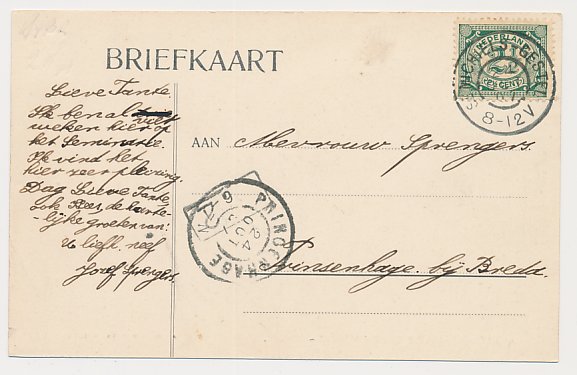 BRIEFKAART
Lieve Tante
Ik ben al
weken hier op
het Seminarie.
Ik vind het
hier zeer plezierig.
Dag Lieve Tante,
ook Kees, de harte-
lijke groeten van:
U liefh. neef
Jozef Sprengers.
AAN Mevrouw Sprengers.
Prinsenhage bij Breda.
NEDERLAND
2½
CENT
8-12V
PRINCENHAGE
OCT